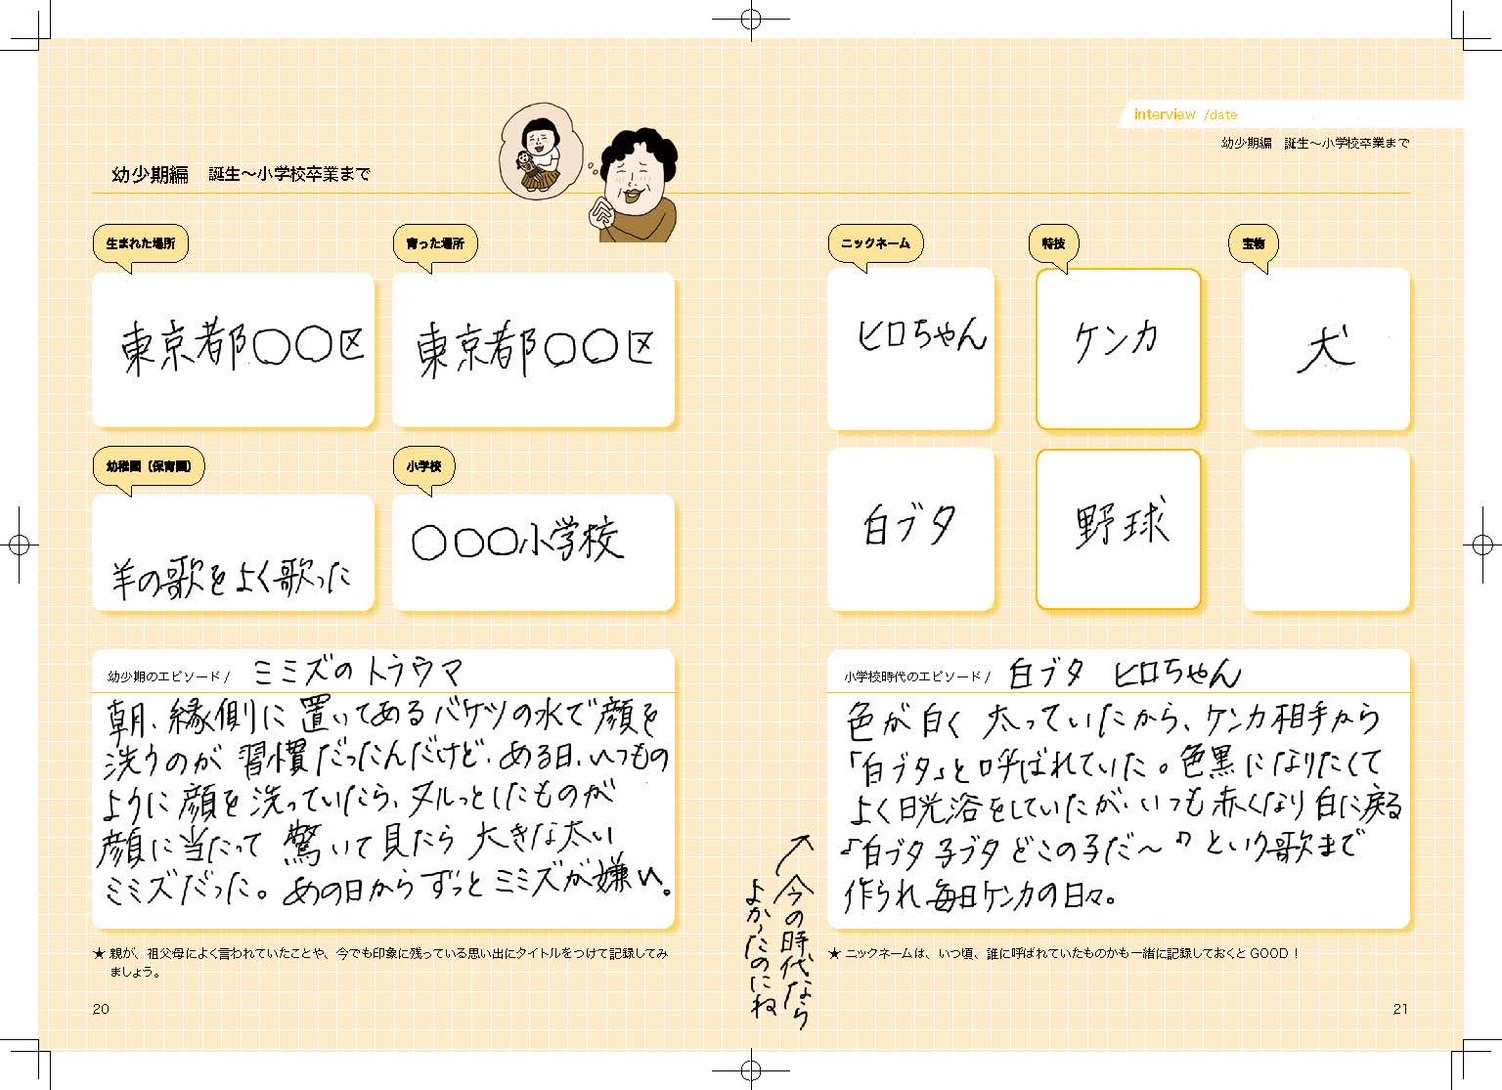 幼少期編　誕生～小学校卒業まで
生まれた場所
東京都〇〇区
育った場所
東京都〇〇区
幼稚園（保育園）
羊の歌をよく歌った
小学校
〇〇〇小学校
幼少期のエピソード/ ミミズのトラウマ
朝、縁側に置いてあるバケツの水で顔を
洗うのが習慣だったんだけど、ある日、いつもの
ように顔を洗っていたら、ヌルっとしたものが
顔に当たって驚いて見たら大きな太い
ミミズだった。あの日からずっとミミズが嫌い。
★ 親が、祖父母によく言われていたことや、今でも印象に残っている思い出にタイトルをつけて記録してみ
ましょう。
20
interview /date
幼少期編　誕生～小学校卒業まで
ニックネーム
ヒロちゃん
白ブタ
特技
ケンカ
野球
宝物
犬
小学校時代のエピソード/ 白ブタ ヒロちゃん
色が白く太っていたから、ケンカ相手から
「白ブタ」と呼ばれていた。色黒になりたくて
よく日光浴をしていたが、いつも赤くなり白に戻る
♪「白ブタ子ブタどこの子だ～♪」という歌まで
作られ毎日ケンカの日々。
今の時代なら
よかったのにね
★ ニックネームは、いつ頃、誰に呼ばれていたものかも一緒に記録しておくとGOOD！
21